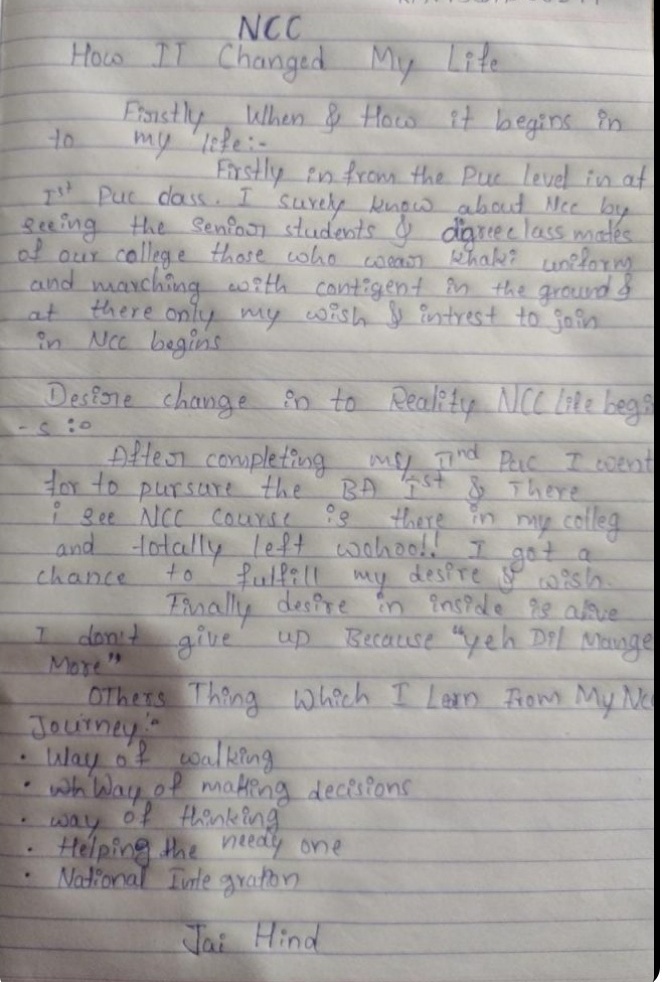 NCC
How IT Changed My Life
Firstly When & How it begins in
to my life:-
Firstly in from the Puc level in at
Ist Puc class. I surely know about Ncc by
seeing the senior students & digree class mates
of our college those who wear khaki uniform
and marching with contigent in the ground &
at there only my wish & intrest to join
in Ncc begins
Desire change in to Reality NCC Life begi
-s :-
After completing my IInd Puc I went
for to pursure the BA Ist & There
i see NCC course is there in my colleg
and totally left wohoo!! I got a
chance to fulfill my desire & wish.
Finally desire in inside is alive
I don't give up Because "yeh Dil Mange
More"
OThers Thing Which I Lern From My Ncc
Journey:-
• Way of walking
• Wh Way of making decisions
• way of thinking
• Helping the needy one
• National Inte gration
Jai Hind